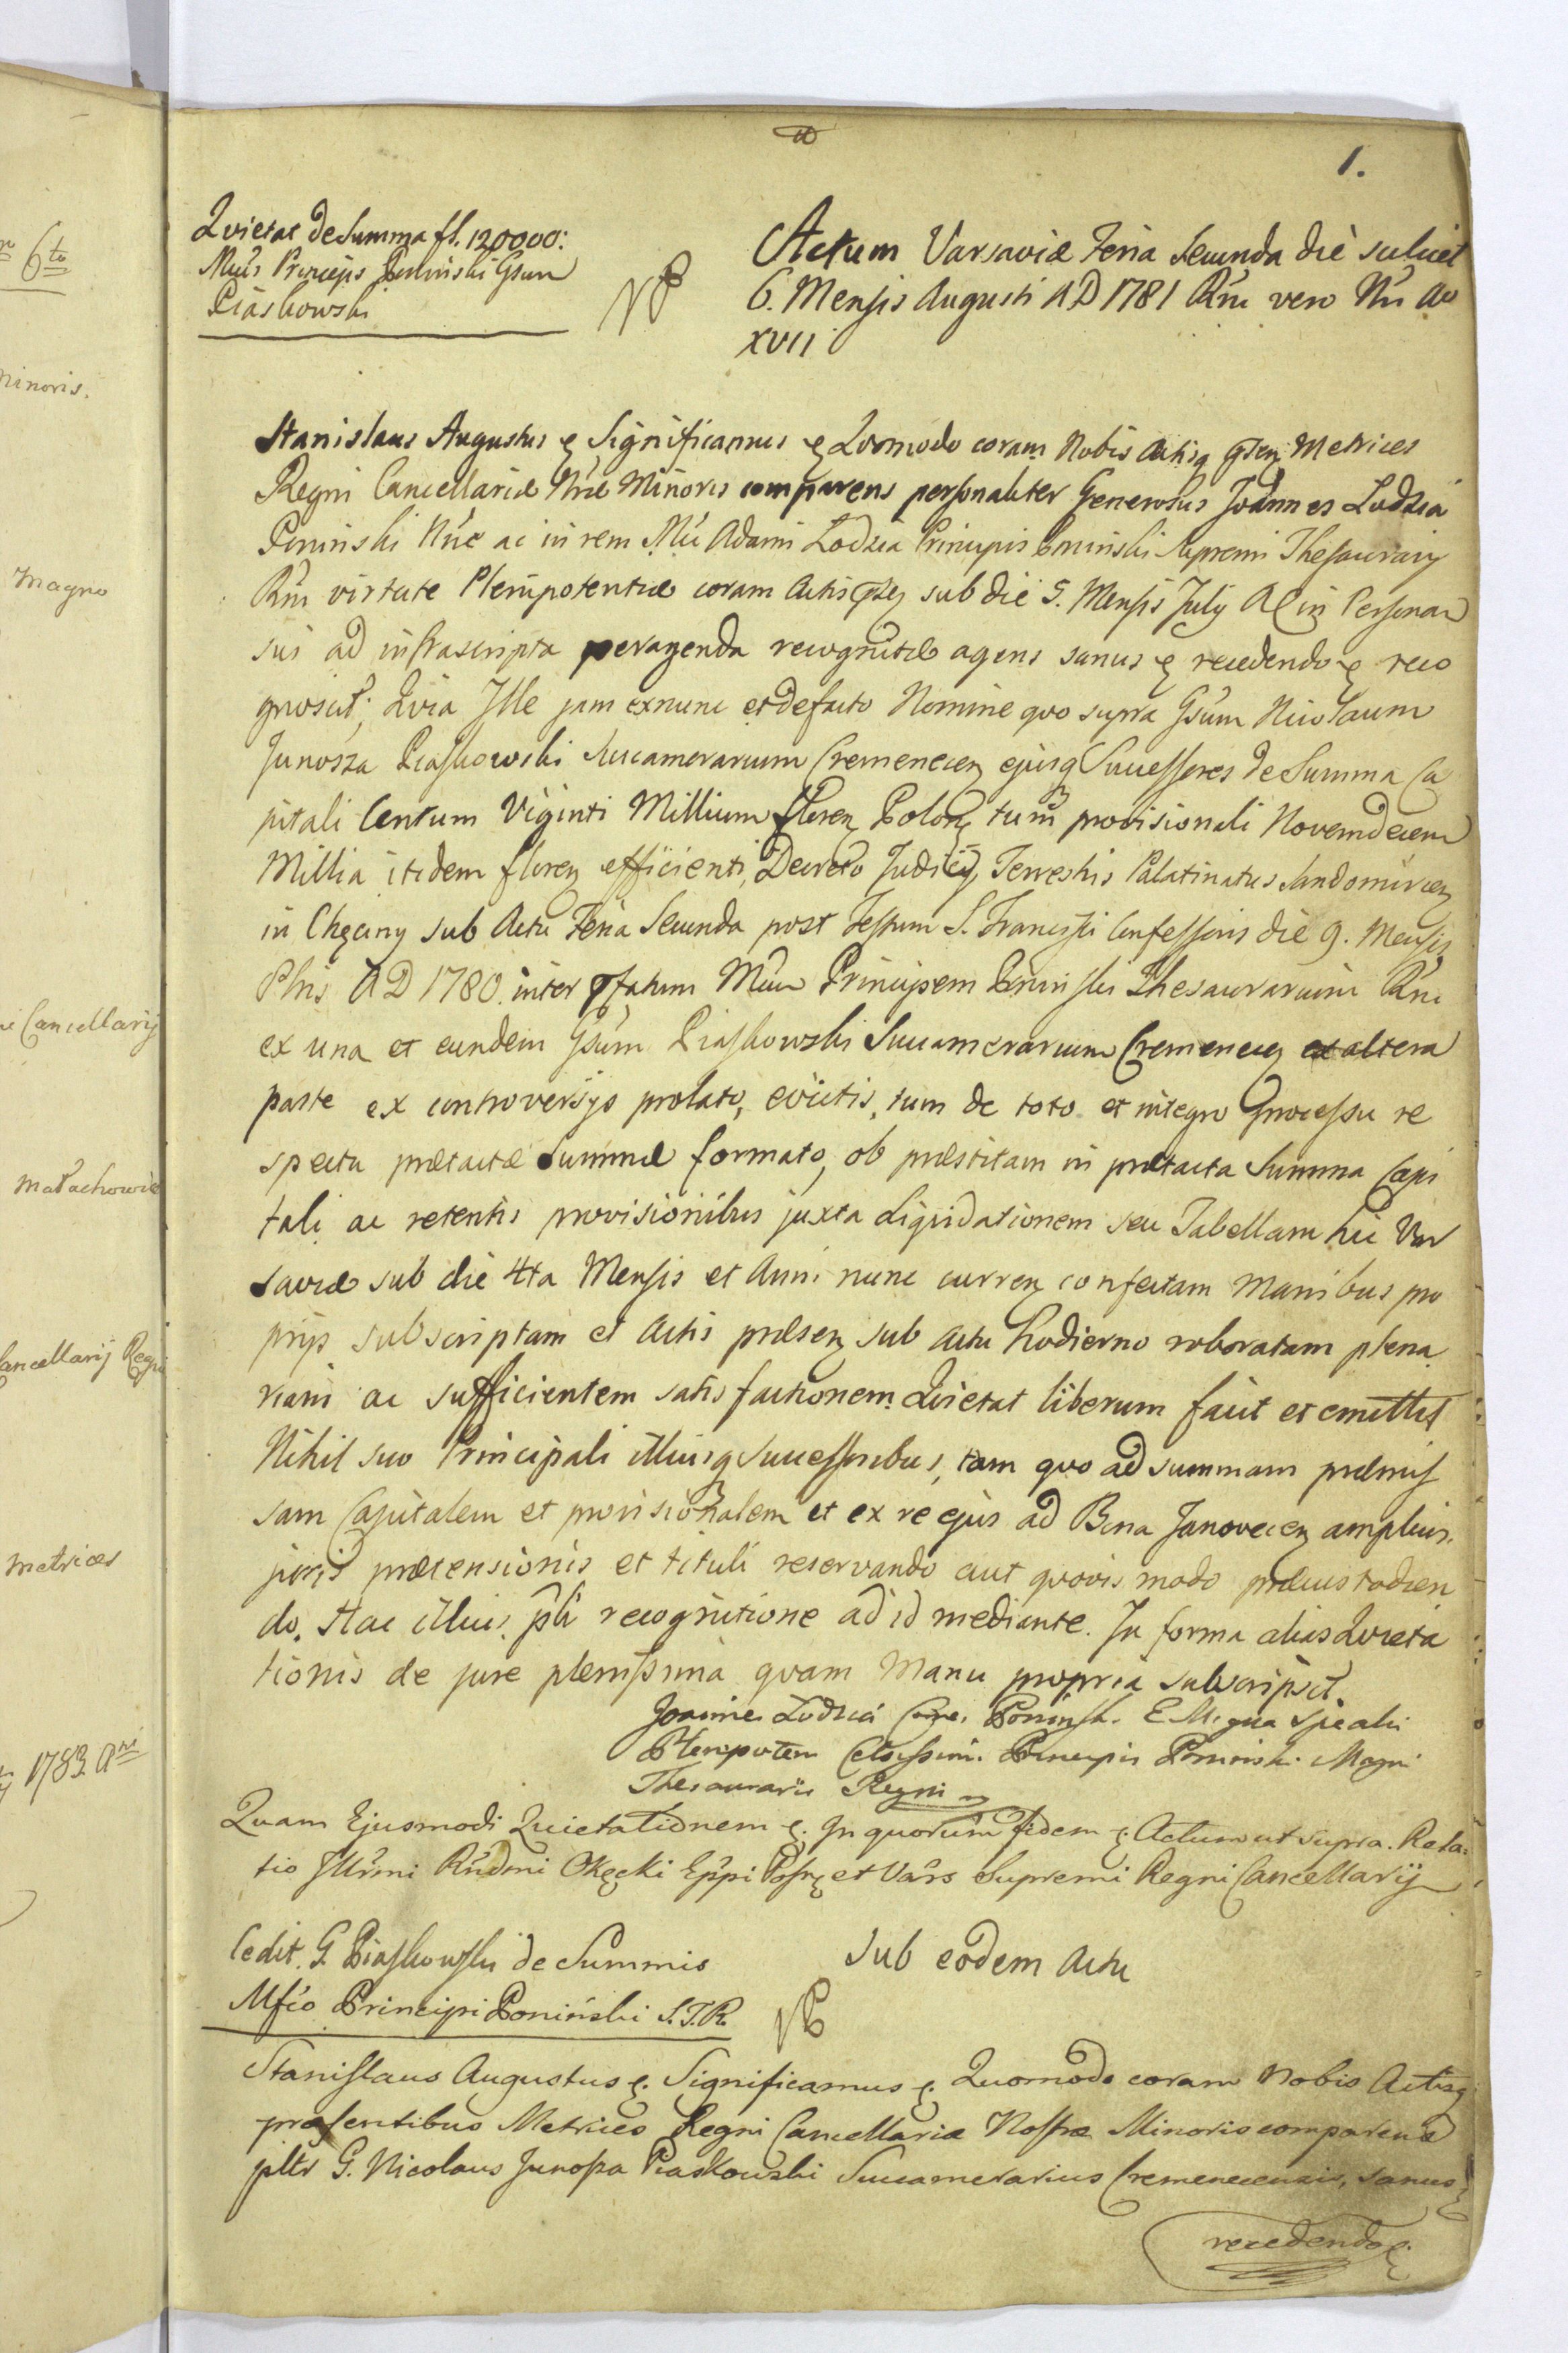 1.
Qvietat de Summa fl. 120000:
Mcus Princeps Poninski Gsum
Piaskowski
NB
Actum Varsaviæ Feria Secunda die scilicet
6. Mensis Augusti AD 1781 Rni vero Nri Ao
XVII
Stanislaus Augustus & Significamus & Qvomodo coram Nobis Actisq prsen Metrices
Regni Cancellariæ Nræ Minoris comparens personaliter Generosus Joannes Lodzia
Poninski Nne ac in rem Mci Adami Lodzia Principis Poninski Supremi Thesaurarij
Rni virtute Plenipotentiæ coram Actis prsen sub die 5. Mensis July AC in Personam
sui ad infrascripta peragenda recognitæ agens sanus & recedendo & reco
gnovit; Qvia Ille jam exnunc et defacto Nomine qvo supra Gsum Nicolaum
Junosza Piaskowski Succamerarium Cremenecen ejusq Successores de Summa Ca
pitali Centum Viginti Millium floren Polon tum provisionali Novemdecem
Millia itidem floren efficienti, Decreto Judicij Terrestris Palatinatus Sandomirien
in Chęciny sub Actu Feria Secunda post Festum S. Francisci Confessoris die 9. Mensis
8bris AD 1780. inter præfatum Mcum Principem Poninski Thesaurarium Rni
ex una et eundem Gsum Piaskowski Succamerarium Cremenecen ex altera
parte ex controversijs prolato, evictis, tum de toto et integro Processu re
spectu prætactæ Summæ formato, ob præstitam in prætacta Summa Capi
tali ac retentis provisionibus juxta Liqvidationem seu Tabellam hic Var
saviæ sub die 4ta Mensis et Anni nunc curren confectam Manibus pro
prijs subscriptam et Actis præsen sub actu hodierno roboratam plena
riam ac sufficientem satisfactionem. Qvietat liberum facit et emittit
Nihil suo Principali illiusq Successoribus, tam qvo ad summam præmis
sam Capitalem et provisionalem et ex re ejus ad Bona Janovecen amplius
juris prætensionis et tituli reservando aut qvovis modo præcustodien
do. Hac illius pli recognitione ad id mediante. In forma alias Qvieta
tionis de jure plenissima qvam Manu propria subscripsit.
Joannes Lodzia Poninski. specialis
Plenipoten Celsissimi Principis Poninski Magni
Thesaurarii Regni
Quam Ejusmodi Quietationem &. In quorum fidem &. Actum ut supra. Rela:
tio Illrmi Rndmi Okęcki Eppi Posn et Vars Supremi Regni Cancellarij
Cedit G. Piaskowski de Summis
Mfico Principi Poniński S.T.R.
NB
Sub eodem Actu
Stanislaus Augustus &. Significamus &. Quomodo coram Nobis Actisq
præsentibus Metrices Regni Cancellariæ Nostræ Minoris comparens
pltr G. Nicolaus Junosza Piaskowski Succamerarius Cremenecensis, sanus &
recedendo &.
6to
Minoris.
Magno
Cancellarij
Małachowie
Cancellarij Regni
Metrices
1783 Ani